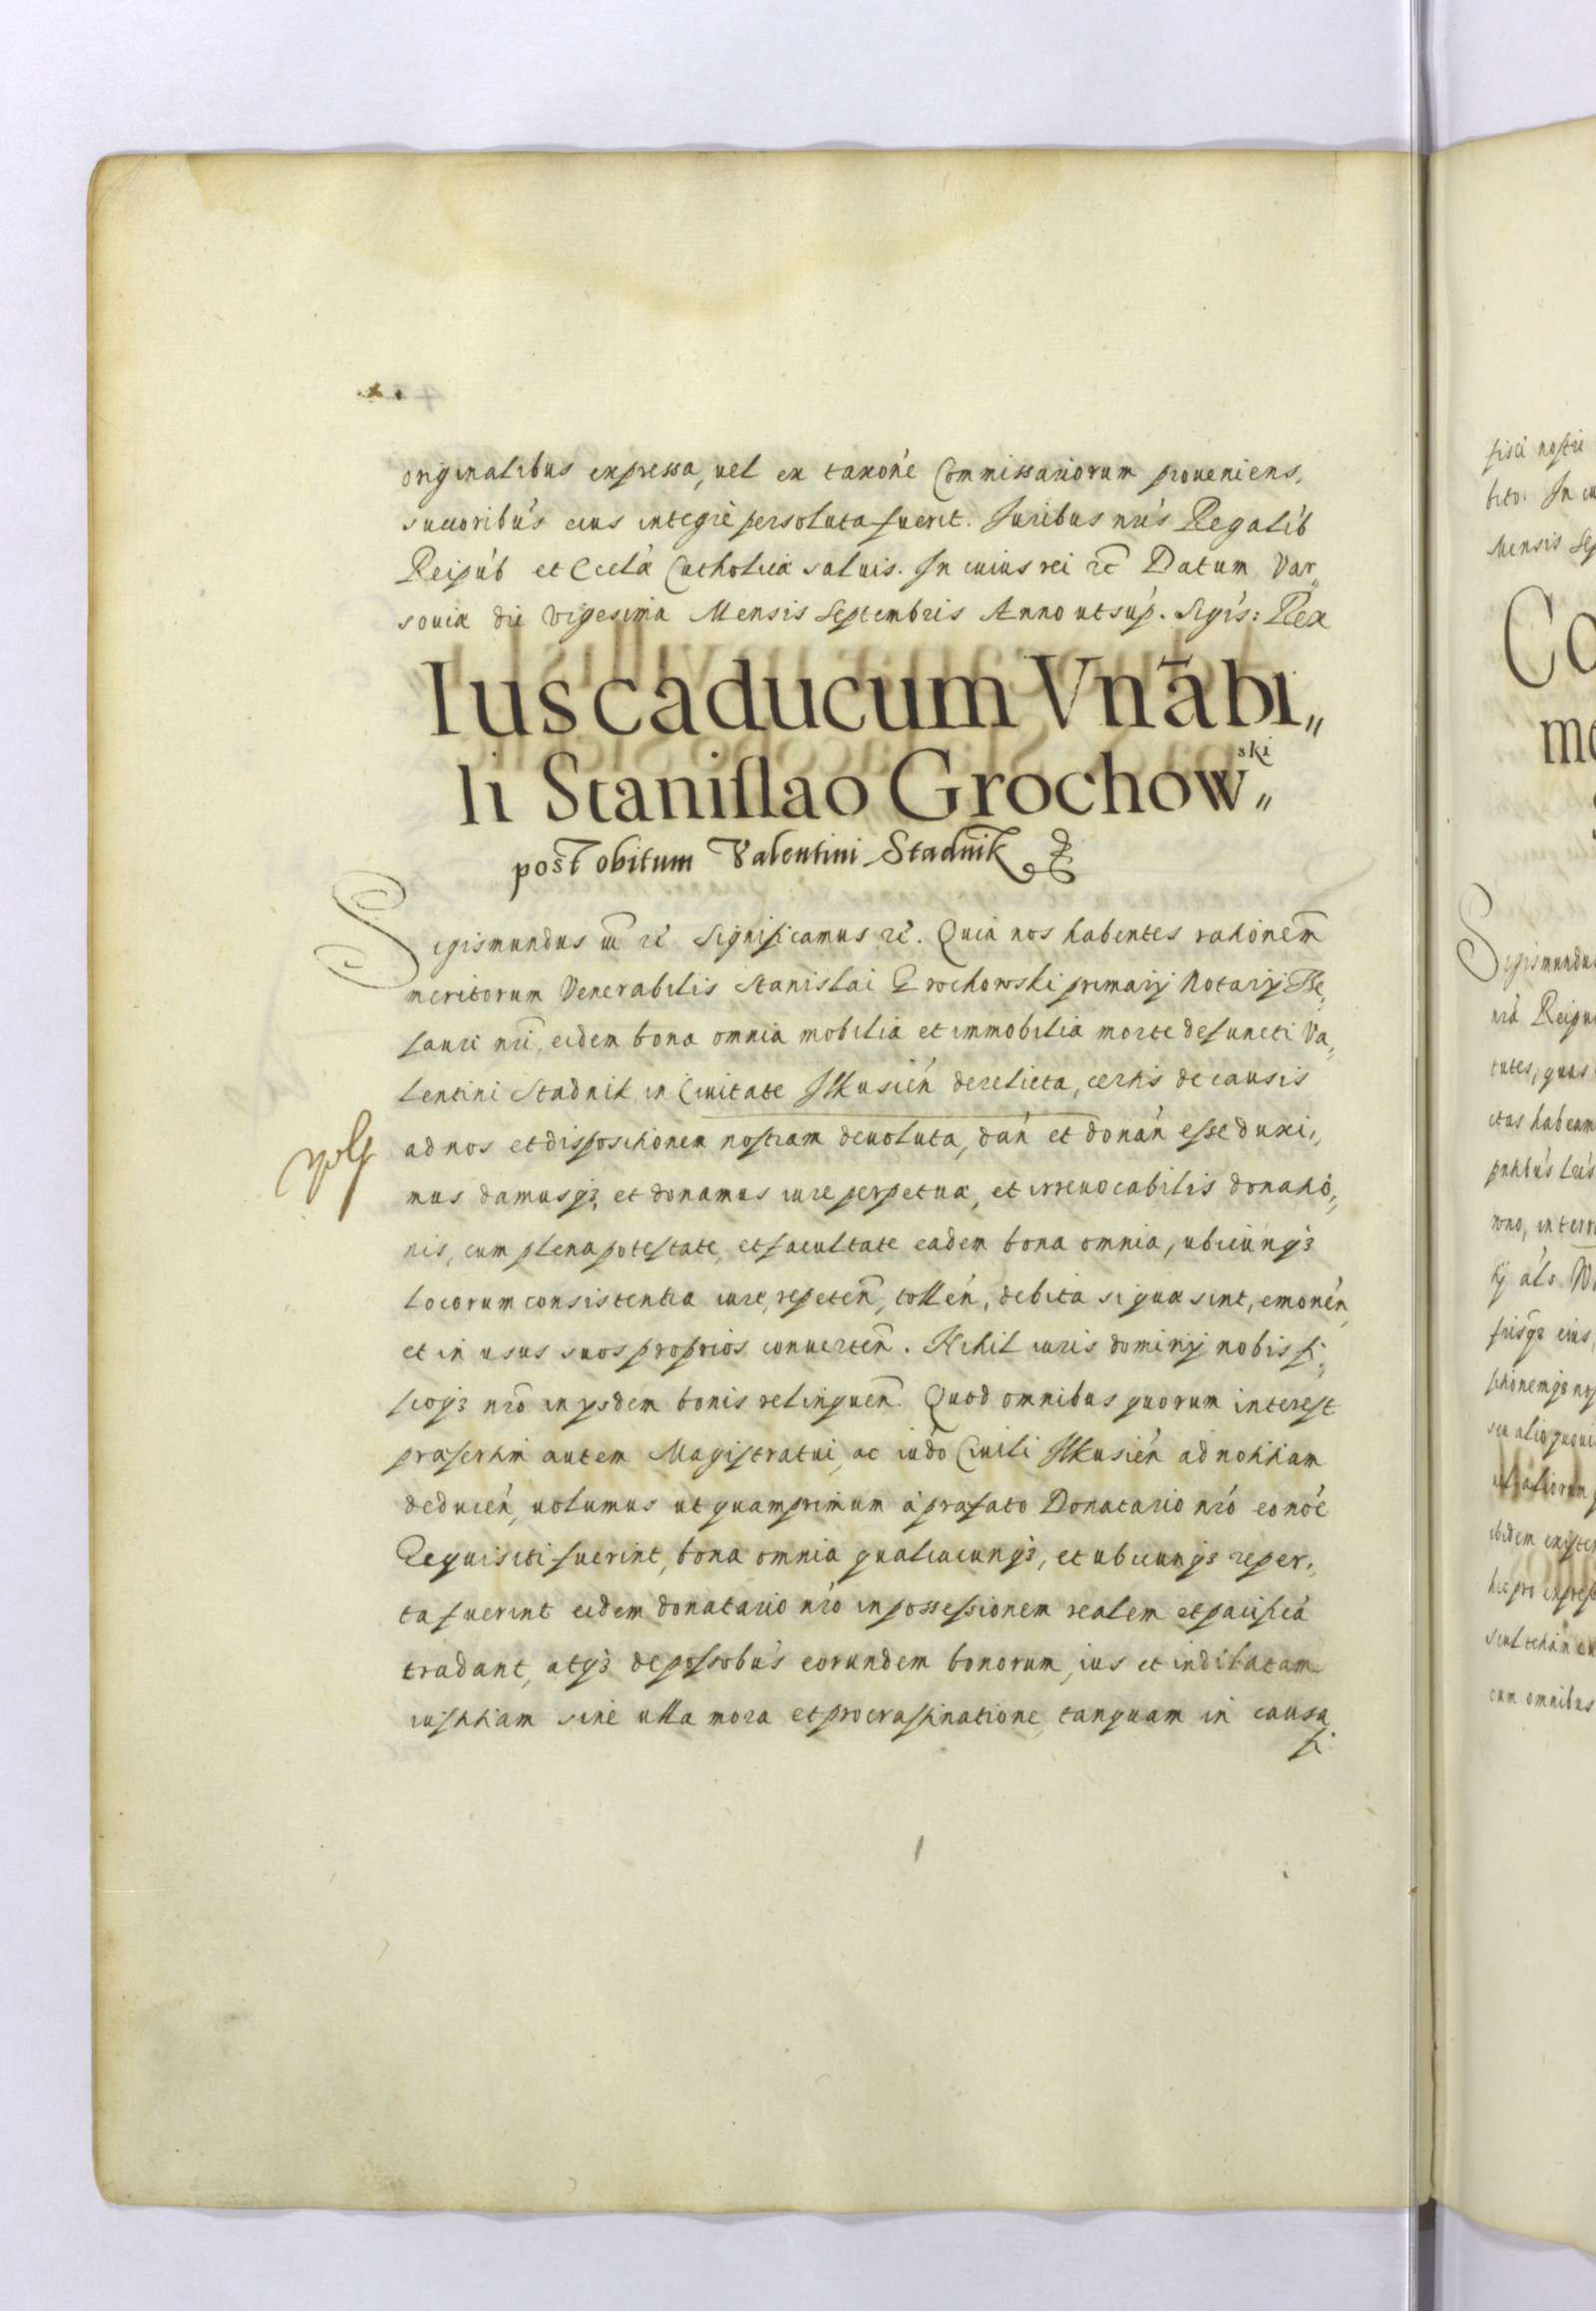 originalibus expressa, uel ex taxoñe Commissariorum proueniens,
succoribus eius integrè persoluta fuerit. Iuribus nris Regalib
Reipub et Eccla Catholica saluis. In cuius rei rc Datum Var„
souia die vigesima Mensis Septembris Anno ut sup. Sigis: Rex
Ius caducum Vnābi„
li Stanislao Grochow„ski
post obitum Valentini Stadnik
Sigismundus iii rc Significamus rc. Quia nos habentes rationem
meritorum Venerabilis Stanislai Grochowski primarij Notarij The„
sauri nri, eidem bona omnia mobilia et immobilia morte defuncti Va„
lentini Stadnik in Ciuitate Ilkusień derelicta, certis de causis
ad nos et dispositionem nostram deuoluta, dań et donań esse duxi„
mus damusq3 et donamus iure perpetuæ, et irreuocabilis donatio„
nis, cum plena potestate, et facultate eadem bona omnia, ubicunq3
locorum consistentia iure, repeteñ, tolleń, debita si qua sint, emoneń,
et in usus suos proprios conuerteñ. Nihil iuris dominij nobis fi„
scoq3 nro in ijsdem bonis relinqueñ. Quod omnibus quorum interest
præsertim autem Magistratui, ac iudo Ciuili Ilkusień ad notitiam
deducień, uolumus ut quamprimum à præfato Donatario nro eo noe
Requisiti fuerint, bona omnia qualiacunq3, et ubicunq3 reper„
ta fuerint eidem donatario nro in possessionem realem et pacificā
tradant, atq3 de possobus eorundem bonorum, ius et indilatam
iustitiam sine ulla mora et procrastinatione, tanquam in causa
fi
fisci nostri
bito. In cu
Mensis Sep
Co
me
Sigismundu
nra Reipu
tutes, quas
itas habeam
pntibus lris
fisq3 eius,
sitionemq3 nos
seu alio quoui
ibidem existen
hic pro express
cum omnibus